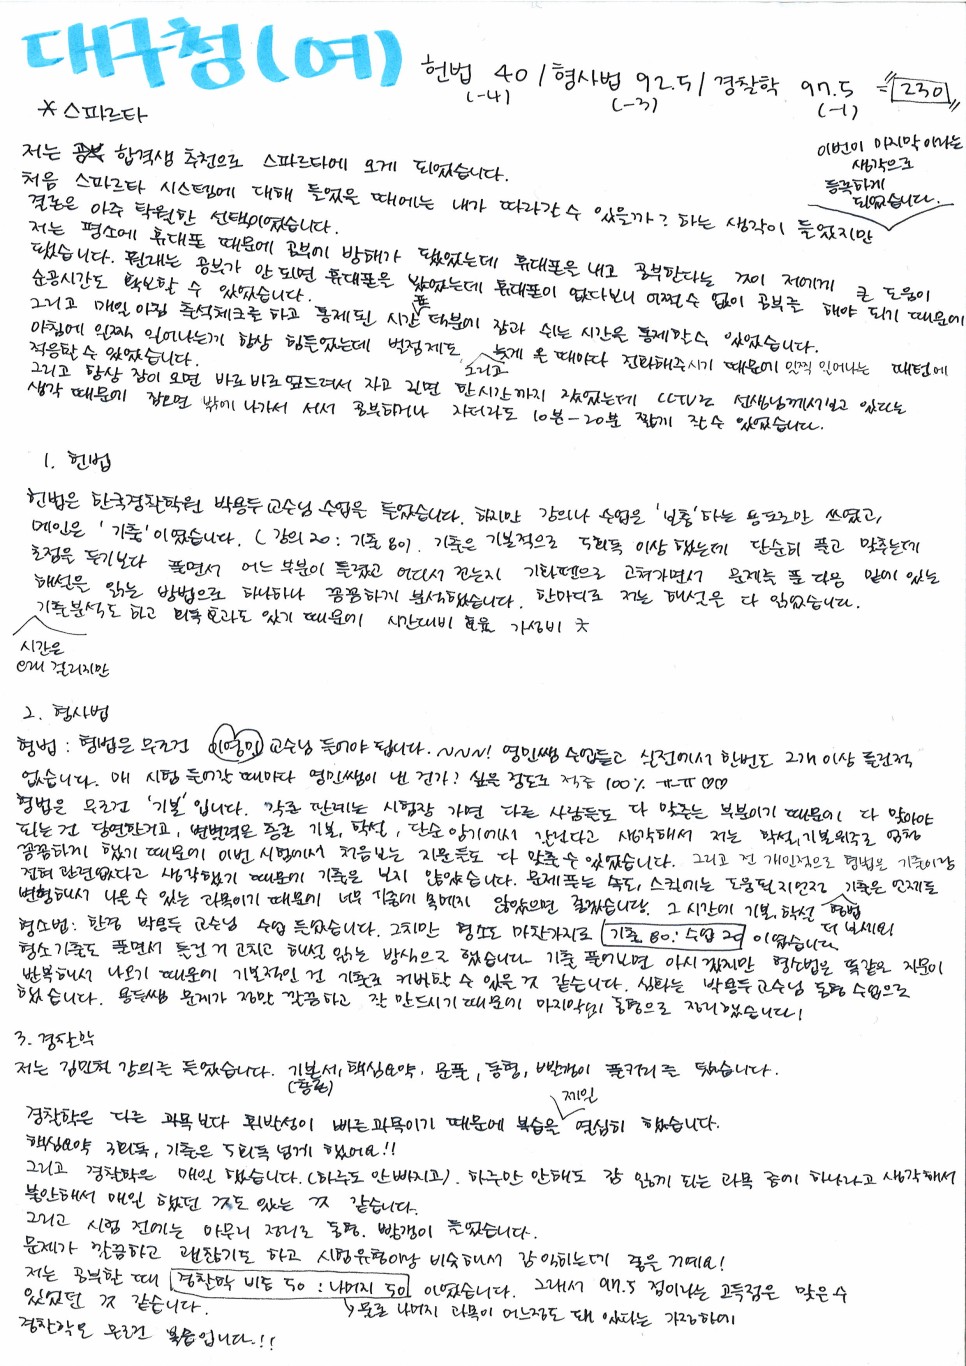 대구청(여)
헌법 40 / 형사법 92.5 / 경찰학 97.5 = 230
(-4) (-3) (-1)
* 스파르타
저는 합격생 추천으로 스파르타에 오게 되었습니다.
처음 스파르타 시스템에 대해 들었을 때에는 내가 따라갈 수 있을까? 하는 생각이 들었지만
이번이 마지막이라는
생각으로
등록하게
되었습니다.
결론은 아주 탁월한 선택이었습니다.
저는 평소에 휴대폰 때문에 공부에 방해가 됐었는데 휴대폰을 내고 공부한다는 것이 저에게 큰 도움이
됐습니다. 원래는 공부가 안 되면 휴대폰을 봤었는데 휴대폰이 없다보니 어쩔 수 없이 공부를 해야 되기 때문에
순공시간도 확보할 수 있었습니다.
그리고 매일 아침 출석체크를 하고 통제된 시간 덕분에 잠과 쉬는 시간을 통제할 수 있었습니다.
아침에 일찍 일어나는게 항상 힘들었는데 벌점제도, 그리고 늦게 올 때마다 전화해주시기 때문에 일찍 일어나는 패턴에
적응할 수 있었습니다.
그리고 항상 잠이 오면 바로바로 엎드려서 자고 길면 한시간까지 잤었는데 CCTV로 선생님께서 보고 있다는
생각 때문에 잠오면 밖에 나가서 서서 공부하거나 자더라도 10분-20분 짧게 잘 수 있었습니다.
1. 헌법
헌법은 한국경찰학원 박용두 교수님 수업을 들었습니다. 하지만 강의나 수업은 '보충'하는 용도로만 쓰였고,
메인은 '기출'이었습니다. (강의 20 : 기출 80). 기출은 기본적으로 5회독 이상 했는데 단순히 풀고 맞추는데
초점을 두기보다 풀면서 어느 부분이 틀렸고 어디서 전는지 기화펜으로 고쳐가면서 문제를 푼 다음 밑에 있는
해설을 읽는 방법으로 하나하나 꼼꼼하게 분석했습니다. 한마디로 저는 해설은 다 읽었습니다.
기출분석도 하고 회독효과도 있기 때문에 시간대비 효율 가성비 굿
시간은
오래 걸리지만
2. 형사법
형법 : 형법은 무조건 이영민 교수님 들어야 됩니다. ~NNN! 영민쌤 수업듣고 실전에서 한번도 2개 이상 틀린적
없습니다. 매 시험 들어갈 때마다 영민쌤이 낸 건가? 싶은 정도로 적중 100% ㅠㅠ ♡♡
형법은 무조건 '기본'입니다. 각론 판례는 시험장 가면 다른 사람들도 다 맞추는 부분이기 때문에 다 맞아야
되는건 당연한거고, 변별력은 총론 기본, 학설, 단순 암기에서 갈린다고 생각해서 저는 학설, 기본위주로 엄청
꼼꼼하게 했기 때문에 이번 시험에서 처음보는 지문들도 다 맞출 수 있었습니다. 그리고 전 개인적으로 형법은 기출이랑
전혀 관련없다고 생각했기 때문에 기출을 보지 않았습니다. 문제푸는 속도, 스킬에는 도움될지언정 기출은 언제든
변형해서 나올 수 있는 과목이기 때문에 너무 기출에 목매지 않았으면 좋겠습니다. 그 시간에 기본, 학설 형법 더 보세요
형소법 : 한경 박용두 교수님 수업 들었습니다. 그치만 형소도 마찬가지로 기출 80 : 수업 20 이었습니다
형소 기출도 풀면서 틀린 거 고치고 해설 읽는 방식으로 했습니다 기출 풀어보면 아시겠지만 형소법은 똑같은 지문이
반복해서 나오기 때문에 기본적인 건 기출로 커버할 수 있은 것 같습니다. 심화는 박용두 교수님 동형 수업으로
했습니다. 용두쌤 문제가 정말 깔끔하고 잘 만드시기 때문에 마지막엔 동형으로 정리했습니다!
3. 경찰학
저는 김민철 강의를 들었습니다. 기본서, 핵심요약, 문풀, 동형, 빨갱이 풀커리를 탔습니다.
(총론)
제일
경찰학은 다른 과목보다 휘발성이 빠른 과목이기 때문에 복습을 열심히 했습니다.
핵심요약 3회독, 기출은 5회독 넘게 했어요!!
그리고 경찰학은 매일 했습니다. (하루도 안 빠지고). 하루만 안해도 잘 잊게 되는 과목 중에 하나라고 생각해서
불안해서 매일 했던 것도 있는 것 같습니다.
그리고 시험 전에는 마무리 정리로 동형, 빨갱이 들었습니다.
문제가 깔끔하고 괜찮기도 하고 시험유형이랑 비슷해서 감 익히는데 좋은 거예요!
저는 공부할 때 경찰학 비중 50 : 나머지 50 이었습니다. 그래서 97.5 점이라는 고득점을 맞을 수
있었던 것 같습니다. → 물론 나머지 과목이 어느정도 돼 있다는 가정하에
경찰학도 무조건 복습입니다.!!